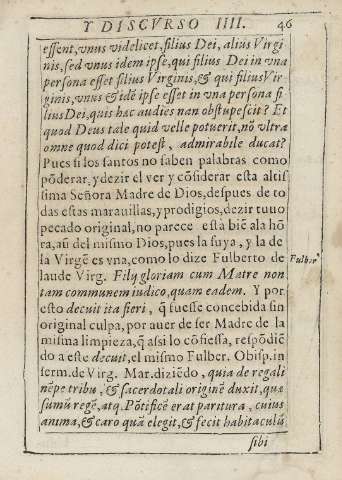 Y DISCVRSO IIII. 46
essent, vnus videlicet, filius Dei, alius Virgi
nis, sed vnus idem ipse, qui filius Dei in vna
persona esset filius Virginis, & qui filius Vir
ginis, vnus & idē ipse esset in vna persona fi
lius Dei, quis hac audiēs nan obstupescit? Et
quod Deus tale quid velle potuerit, nō vltra
omne quod dici potest, admirabile ducat?
Pues si los santos no saben palabras como
pōderar, y dezir el ver y cōsiderar esta altis
sima Señora Madre de Dios, despues de to
das estas marauillas, y prodigios, dezir tuuo
pecado original, no parece està biē a la hō
ra, aū del mismo Dios, pues la suya, y la de
la Virgē es vna, como lo dize Fulberto de
laude Virg. Filij gloriam cum Matre non
tam communem iudico, quam eadem. Y por
esto decuit ita fieri, q̄ fuesse concebida sin
original culpa, por auer de ser Madre de la
misma limpieza, q̄ assi lo cōfiessa, respōdiē
do a este decuit, el mismo Fulber. Obisp. in
serm. de Virg. Mar. diziēdo, quia de regali
nēpe tribu, & sacerdotali originē duxit, quæ
sumū regē, atq. Pōtificē erat paritura, cuius
anima, & caro quā elegit, & fecit habitaculū
sibi
Fulber.